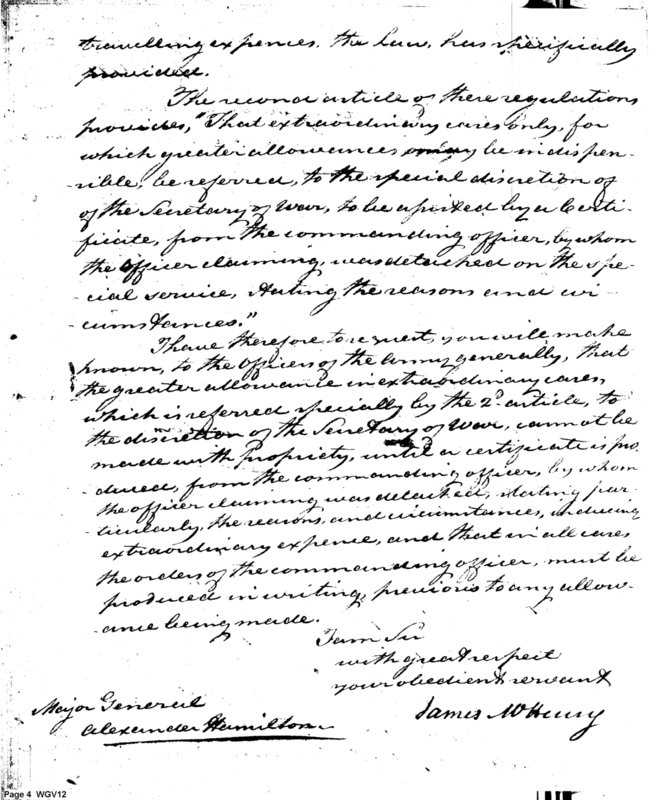 travelling expences. the Law, has specifically
provided.
The second article of these regulations
provides, "That extraordinary cases only, for
which greater allowances may be indispen-
-sible, be referred, to the special discretion of
of the Secretary of War, to be assisted by a Certi-
ficate, from the commanding officer, by whom
the officer claiming, was detached on the spe-
-cial service, stating the reasons and cir-
-cumstances."
I have therefore to request, you will make
known, to the officers of the Army generally, that
the greater allowance in extraordinary cases,
which is referred specially by the 2d article, to
the discretion of the Secretary of War, cannot be
made with propriety, until a certificate is pro
duced, from the commanding officer, by whom
the officer claiming was detached, stating par-
-ticularly, the reasons, and circumstances, inducing
extraordinary expence, and that in all cases
the orders of the commanding officer, must be
produced in writing, previous to any allow-
-ance being made.
I am Sir
with great respect
your obedient servant
James McHenry
Major General
Alexander Hamilton
Page 4 WGV12